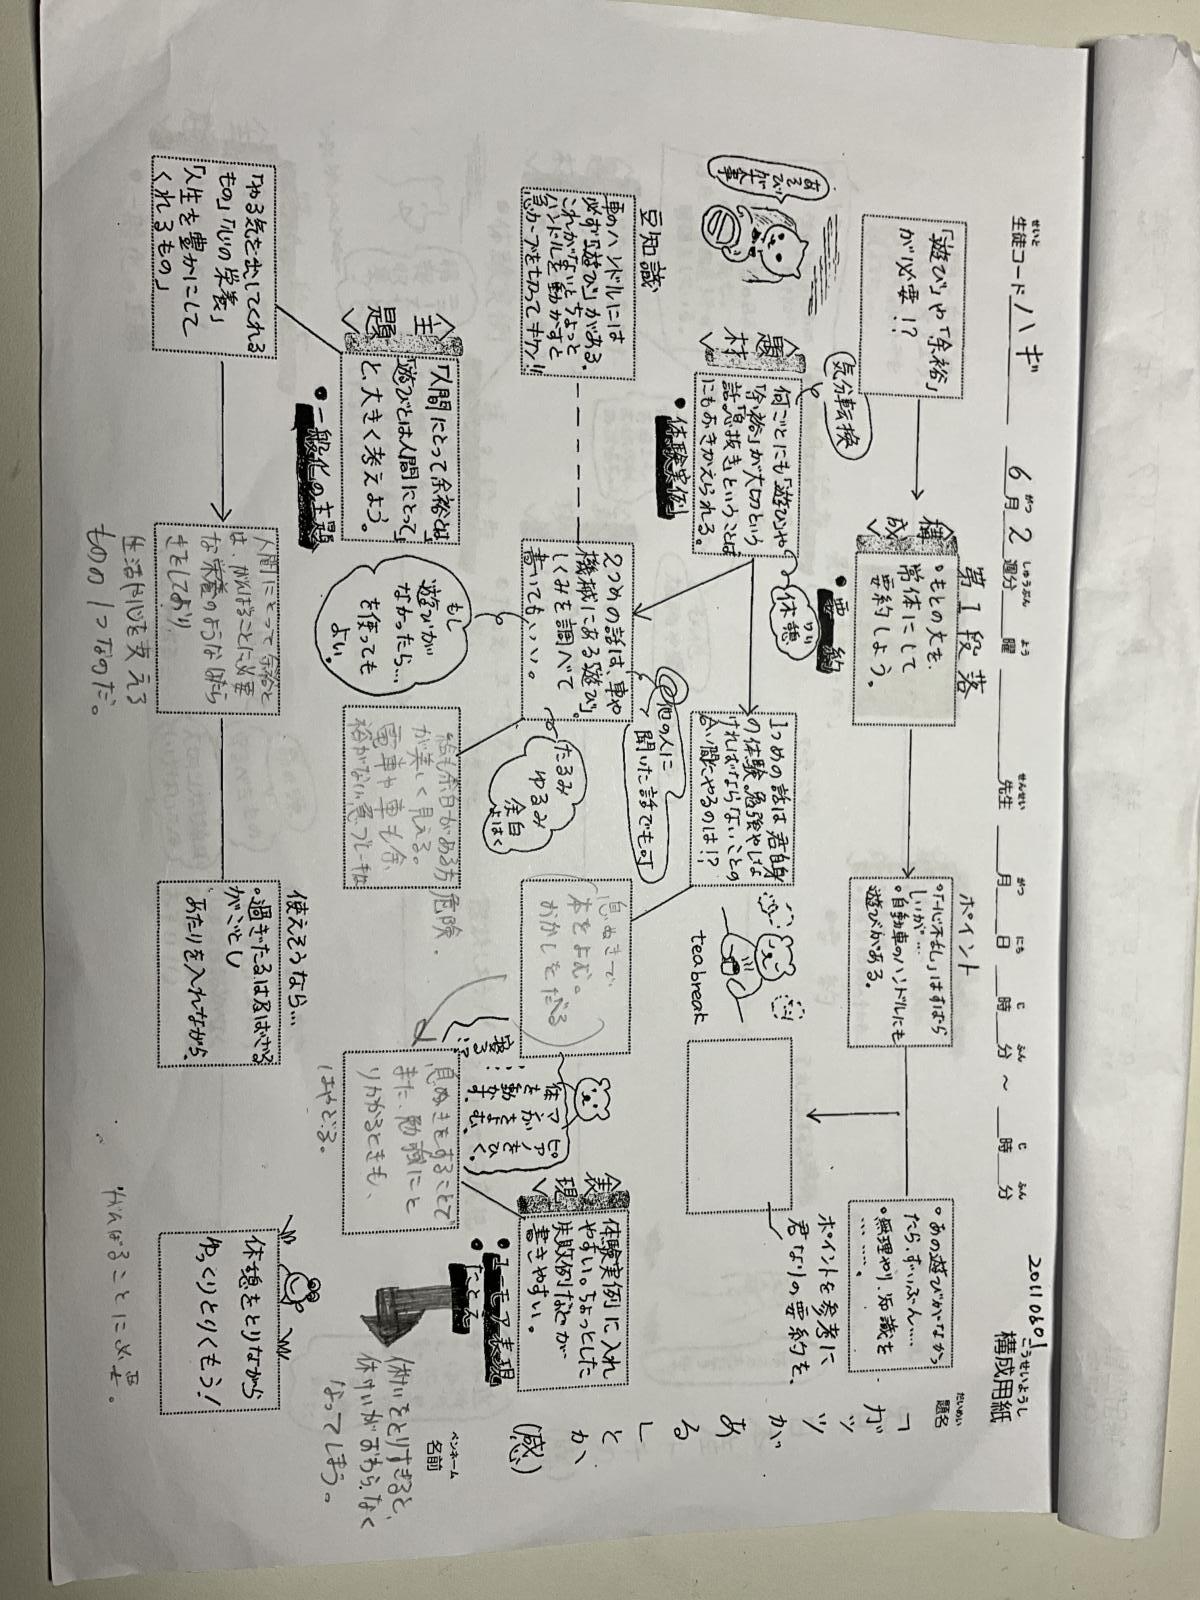 20110601
構成用紙
こうせいようし
生徒コード ハギ
せいと
6月2週分
がつ しゅうぶん
曜
よう
先生
せんせい
月 日 時 分 ～ 時 分
がつ にち じ ふん じ ふん
題名
だいめい
「ガッツがあるとか」(感)
名前
ペンネーム
第1段落
ポイント
「遊び」や「余裕」
が必要!?
構成
・もとの文を、
常体にして
要約しよう。
・要約
・「一心不乱」はすばら
しいが…
・自動車のハンドルにも
遊びがある。
・あの遊びがなかっ
たら、ずいぶん…
・無理やり、知識を
………。
ポイントを参考に
君なりの要約を、
あそびが
大事
題材
何ごとにも「遊び」や
「余裕」が大切という
話。「息抜き」ということば
にもおきかえられる。
気分転換
休憩
・体験実例
1つめの話は君自身
の体験。勉強やしな
ければならないことの
合い間にやるのは!?
tea break
豆知識
車のハンドルには
必ず「遊び」がある。
これがないとちょっと
ハンドルを動かすと
急カーブを切ってキケン!!
2つめの話は、車や
機械にある「遊び」。
しくみを調べて
書いてもいい。
他の人に
聞いた話でも可
たるみ
ゆるみ
余白
よはく
もし
遊びが
なかったら…
を使っても
よい。
息ぬきで
本をよむ。
おかしをたべる
体を動かす。
マンガをよむ。
ピアノをひく。
寝る!?
表現
体験実例に入れ
やすい。ちょっとした
失敗例などが
書きやすい。
・ユーモア表現
・たとえ
主題
「人間にとって余裕とは」
「遊びとは人間にとって」
と、大きく考えよう。
・一般化の主題
絵も余白がある方
が美しく見える。
電車や車も余
裕がない急ブレーキは
危険。
息ぬきをすることで
また、勉強にと
りかかるときも、
はかどる。
休けいをとりすぎると、
休けいがおわらなく
なってしまう。
「やる気を出してくれる
もの」「心の栄養」
「人生を豊かにして
くれるもの」
人間にとって余裕と
は、がんばることに必要
な栄養のようなはたら
きをしており
生活や心を支える
ものの1つなのだ。
使えそうなら…
・過ぎたるは及ばざる
がごとし
あたりを入れながら、
休憩をとりながら
ゆっくりとりくもう!
がんばることに必要。